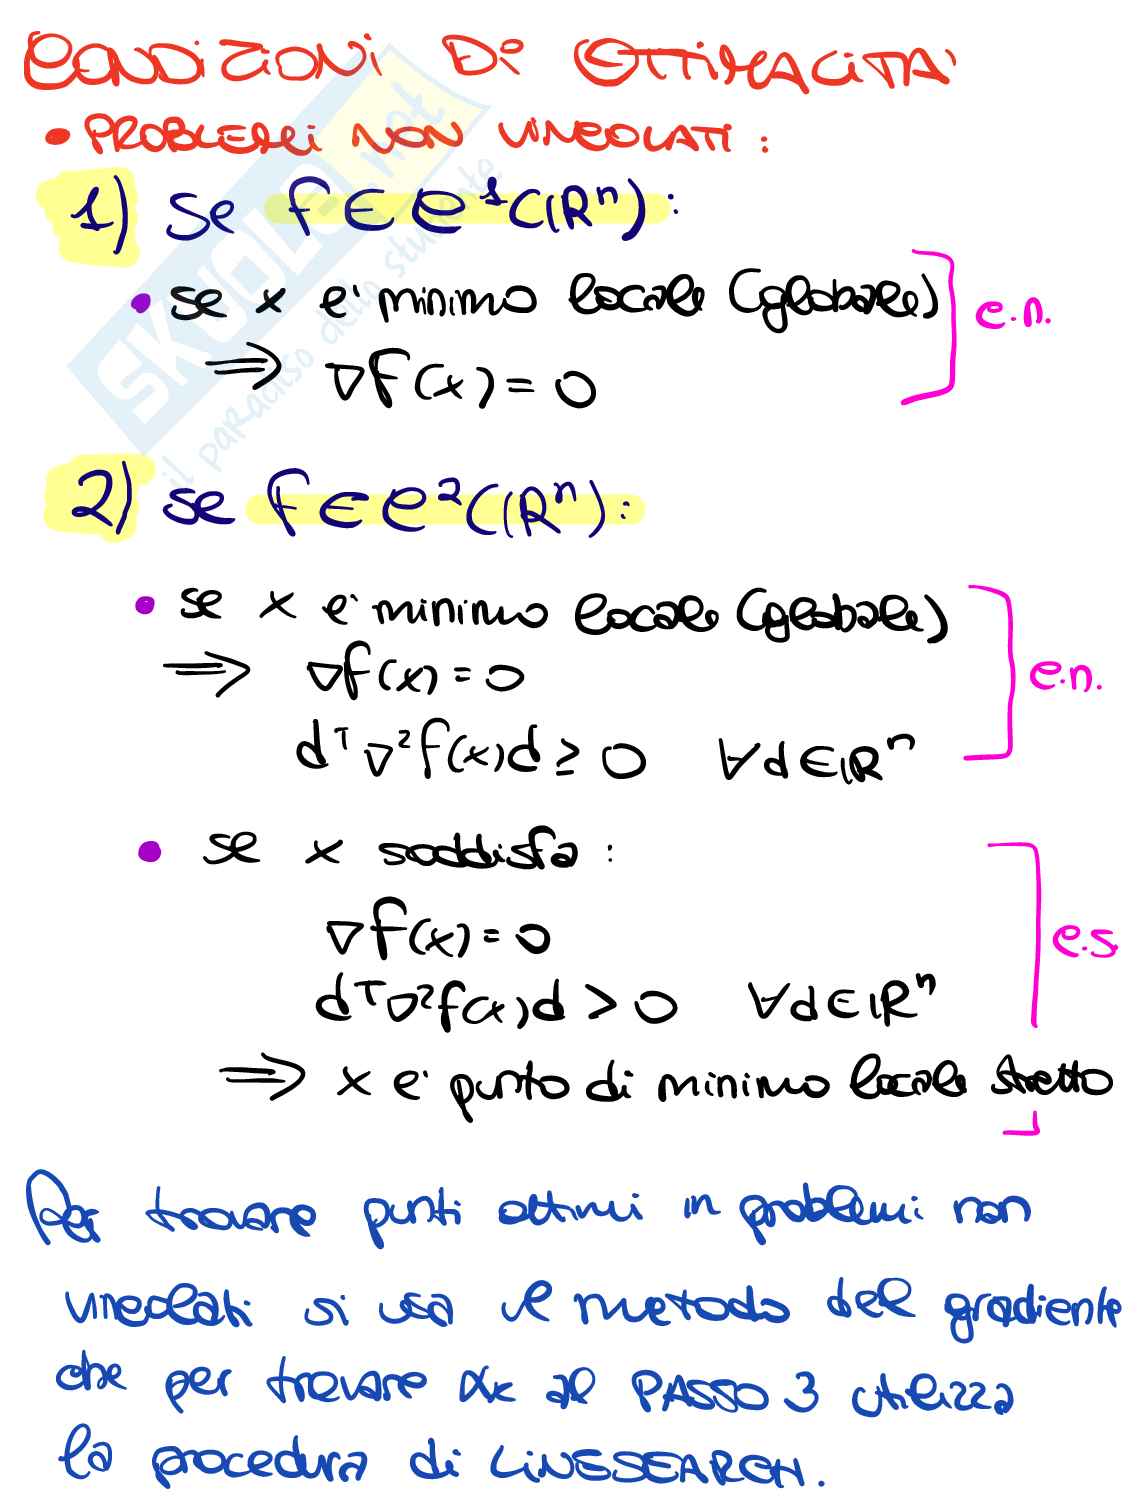 CONDIZIONI DI OTTIMALITA'
• PROBLEMI NON VINCOLATI:
1) Se f ∈ C¹(ℝⁿ):
• se x e' minimo locale (globale)
⇒ ∇f(x) = 0
c.n.
2) se f ∈ C²(ℝⁿ):
• se x e' minimo locale (globale)
⇒ ∇f(x) = 0
dᵀ∇²f(x)d ≥ 0 ∀d∈ℝⁿ
c.n.
• se x soddisfa:
∇f(x) = 0
dᵀ∇²f(x)d > 0 ∀d∈ℝⁿ
c.s
⇒ x e' punto di minimo locale stretto
Per trovare punti ottimi in problemi non
vincolati si usa il metodo del gradiente
che per trovare αk al PASSO 3 utilizza
la procedura di LINESEARCH.
SKUOLA.net
il paradiso dello studente